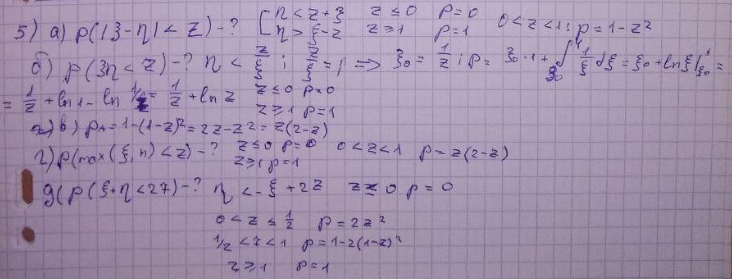 5) а) P(|ξ-η| < z) -? [ η < z+ξ   z ≤ 0   P=0   0<z<1: P=1-z²
η > ξ-z   z ≥ 1   P=1
б) P(ξη < z) -? η < z/ξ ; z/ξ = 1 => ξ₀ = 1/z ; P = ξ₀·1 + ∫ 1/ξ dξ = ξ₀ + ln ξ |ξ₀¹ =
= 1/z + ln 1 - ln 1/z = 1/z + ln z   z ≤ 0   P=0
z ≥ 1   P=1
в) P = 1-(1-z)² = 2z-z² = z(2-z)
г) P(max(ξ,η) < z) -?   z ≤ 0   P=0   0<z<1   P=z(2-z)
z ≥ 1   P=1
д) P(ξ+η < 2z) -?   η < -ξ+2z   z ≤ 0   P=0
0 < z ≤ 1/2   P=2z²
1/2 < z < 1   P=1-2(1-z)²
z ≥ 1   P=1